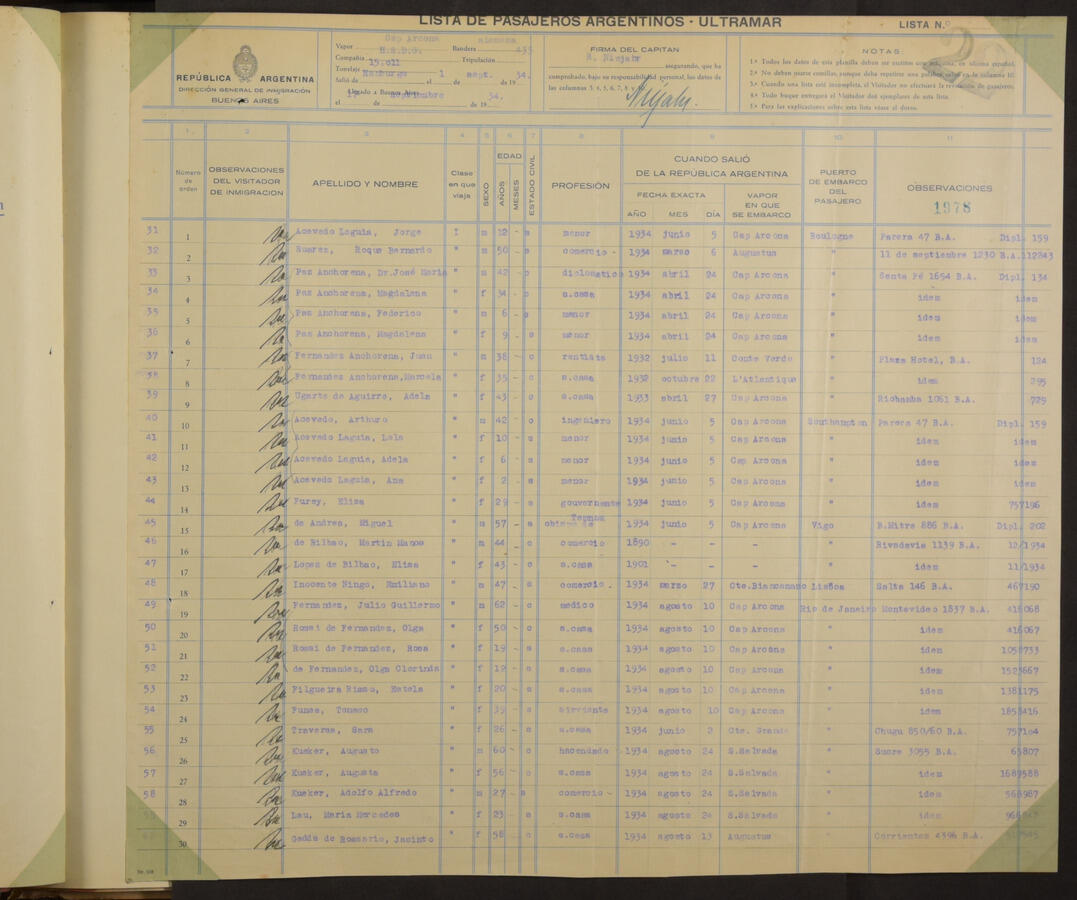 LISTA DE PASAJEROS ARGENTINOS - ULTRAMAR
LISTA N.º
REPÚBLICA ARGENTINA
DIRECCIÓN GENERAL DE INMIGRACIÓN
BUENOS AIRES
Vapor Cap Arcona Bandera alemana
Compañía H.S.D.G. Tripulación 435
Tonelaje 15.011
Salió de Hamburgo el 1 de sept. de 1934.
Llegado a Buenos Aires
el de septiembre de 19 34.
FIRMA DEL CAPITAN
E. Niejahr asegurando, que ha
comprobado, bajo su responsabilidad personal, los datos de
las columnas 3, 4, 5, 6, 7, 8 y 9.
Niejahr
NOTAS
1.ª Todos los datos de esta planilla deben ser escritos con máquina, en idioma español.
2.ª No deben usarse comillas, aunque deba repetirse una palabra, salvo en la columna 10.
3.ª Cuando una lista esté incompleta, el Visitador no efectuará la revisión de pasajeros.
4.ª Todo buque entregará al Visitador dos ejemplares de esta lista.
5.ª Para las explicaciones sobre esta lista véase el dorso.
1 2 3 4 5 6 7 8 9 10 11
Número de orden
OBSERVACIONES DEL VISITADOR DE INMIGRACION
APELLIDO Y NOMBRE
Clase en que viaja
SEXO
EDAD
AÑOS
MESES
ESTADO CIVIL
PROFESIÓN
CUANDO SALIÓ DE LA REPÚBLICA ARGENTINA
FECHA EXACTA
AÑO MES DÍA
VAPOR EN QUE SE EMBARCO
PUERTO DE EMBARCO DEL PASAJERO
OBSERVACIONES
1978
31 1 Acevedo Laguia, Jorge I m 12 - s menor 1934 junio 5 Cap Arcona Boulogne Parera 47 B.A. Dipl. 159
32 2 Suarez, Roque Bernardo " m 50 - s comercio 1934 marzo 6 Augustus " 11 de septiembre 1230 B.A. 112843
33 3 Paz Anchorena, Dr.José Maria " m 42 - c diplomatico 1934 abril 24 Cap Arcona " Santa Fé 1654 B.A. Dipl. 134
34 4 Paz Anchorena, Magdalena " f 34 - c s.casa 1934 abril 24 Cap Arcona " idem idem
35 5 Paz Anchorena, Federico " m 6 - s menor 1934 abril 24 Cap Arcona " idem idem
36 6 Paz Anchorena, Magdalena " f 9 - s menor 1934 abril 24 Cap Arcona " idem idem
37 7 Fernandez Anchorena, Juan " m 38 - c rentista 1932 julio 11 Conte Verde " Plaza Hotel, B.A. 124
38 8 Fernandez Anchorena,Marcela " f 35 - c s.casa 1932 octubre 22 L'Atlantique " idem 295
39 9 Ugarte de Aguirre, Adela " f 43 - c s.casa 1933 abril 27 Cap Arcona " Riobamba 1061 B.A. 729
40 10 Acevedo, Arthuro " m 42 - c ingeniero 1934 junio 5 Cap Arcona Southampton Parera 47 B.A. Dipl. 159
41 11 Acevedo Laguia, Lala " f 10 - s menor 1934 junio 5 Cap Arcona " idem idem
42 12 Acevedo Laguia, Adela " f 6 - s menor 1934 junio 5 Cap Arcona " idem idem
43 13 Acevedo Laguia, Ana " f 2 - s menor 1934 junio 5 Cap Arcona " idem idem
44 14 Furey, Eliza " f 29 - s gouvernante 1934 junio 5 Cap Arcona " idem 757196
45 15 de Andrea, Miguel " m 57 - s obispo de Temnos 1934 junio 5 Cap Arcona Vigo B.Mitre 886 B.A. Dipl. 202
46 16 de Bilbao, Martin Manoa " m 44 - c comercio 1890 - - - " Rivadavia 1139 B.A. 12/1934
47 17 Lopez de Bilbao, Elisa " f 43 - c s.casa 1901 - - - " idem 11/1934
48 18 Inocente Ningo, Emiliano " m 47 - c comercio 1934 marzo 27 Cte.Biancamano Lisboa Salta 146 B.A. 467190
49 19 Fernandez, Julio Guillermo " m 62 - c medico 1934 agosto 10 Cap Arcona Rio de Janeiro Montevideo 1837 B.A. 418068
50 20 Rossi de Fernandez, Olga " f 50 - c s.casa 1934 agosto 10 Cap Arcona " idem 416067
51 21 Rossi de Fernandez, Rosa " f 19 - s s.casa 1934 agosto 10 Cap Arcona " idem 1058733
52 22 de Fernandez, Olga Clorinda " f 19 - s s.casa 1934 agosto 10 Cap Arcona " idem 1523667
53 23 Filgueira Risso, Estela " f 20 - s s.casa 1934 agosto 10 Cap Arcona " idem 1381175
54 24 Funes, Tomaso " f 39 - s sirviente 1934 agosto 10 Cap Arcona " idem 1853416
55 25 Traveras, Sara " f 26 - s s.casa 1934 junio 2 Cte. Grande " Chugu 850/60 B.A. 757104
56 26 Kueker, Augusto " m 60 - c hacendado 1934 agosto 24 S.Salvada " Sucre 3055 B.A. 63807
57 27 Kueker, Augusta " f 56 - c s.casa 1934 agosto 24 S.Salvada " idem 1689588
58 28 Kueker, Adolfo Alfredo " m 27 - s comercio 1934 agosto 24 S.Salvada " idem 568987
29 Lau, Maria Mercedes " f 23 - s s.casa 1934 agosto 24 S.Salvada " idem
30 Gadda de Rossario, Jacinto " f 58 - c s.casa 1934 agosto 13 Augustus " Corrientes 4396 B.A.